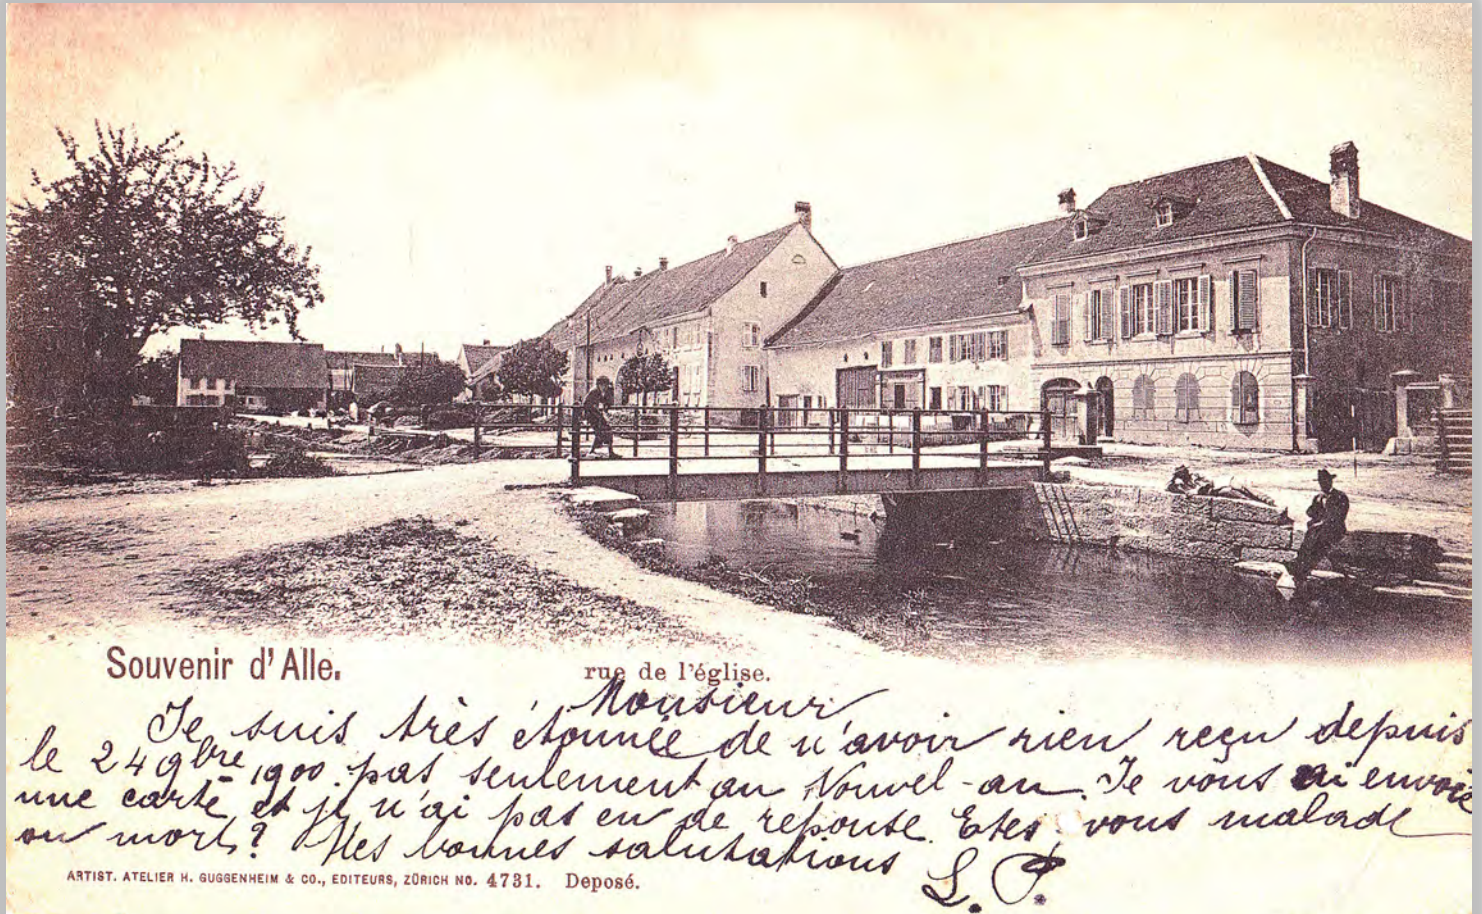 Souvenir d'Alle.
rue de l'église.
Monsieur
Je suis très étonnée de n'avoir rien reçu depuis
le 24 9bre 1900 pas seulement au Nouvel-an. Je vous ai envoié
une carte et je n'ai pas eu de reponse. Etes vous malade
ou mort? Mes bonnes salutations
L. P.
ARTIST. ATELIER H. GUGGENHEIM & CO., EDITEURS, ZÜRICH NO. 4731. Deposé.